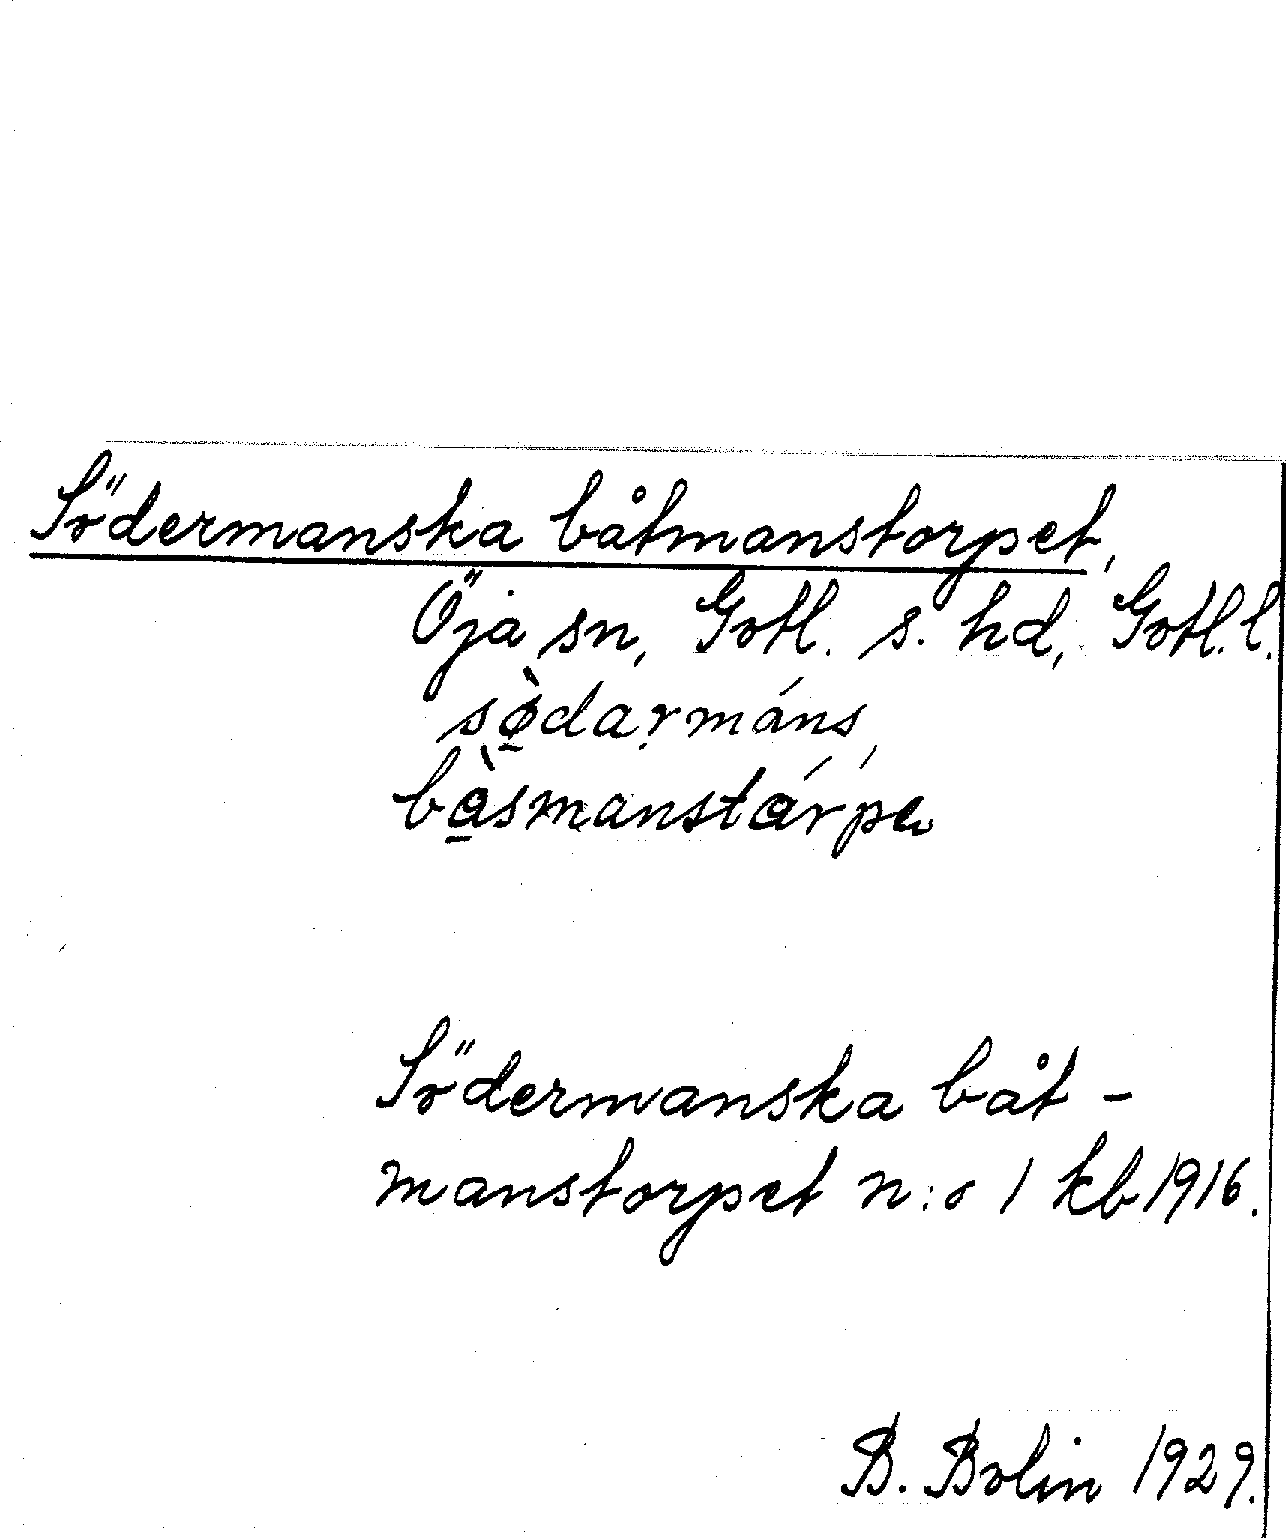 Södermanska båtmanstorpet,
Öja sn, Gotl. s. hd, Gotl. l.
sø̱̀daṛmáns,
bà̱smanstárpe
Södermanska båt-
manstorpet n:o 1 kb 1916.
B. Bolin 1929.